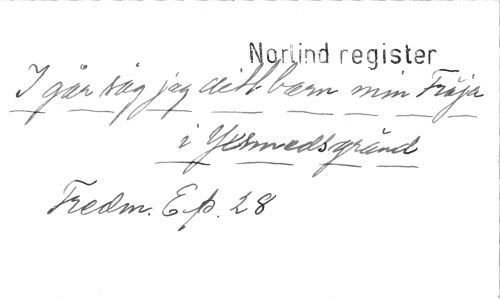 Norlind register
I går såg jag ditt barn min Fröja
i Yxsmedsgränd
Fredm. Ep. 28